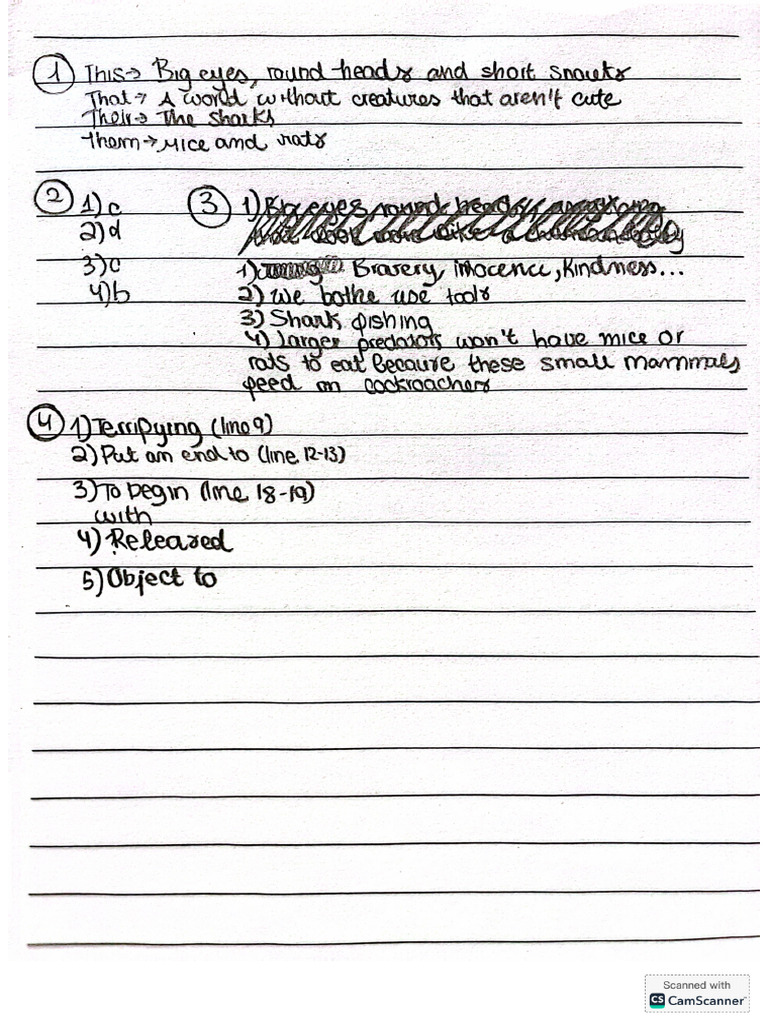 1 This→ Big eyes, round heads and short snouts
That→ A world without creatures that aren't cute
Their→ The sharks
Them→ Mice and rats
2 1) c
2) d
3) c
4) b
3 1) Big eyes, round heads
1) Bravery, inocence, Kindness...
2) We bothe use tools
3) Shark fishing
4) larger predators won't have mice or
rats to eat Because these small mammals
feed on cockroachers
4 1) Terrifying (line 9)
2) Put an end to (line 12-13)
3) To begin (line 18-19)
with
4) Released
5) Object to
Scanned with
CS CamScanner